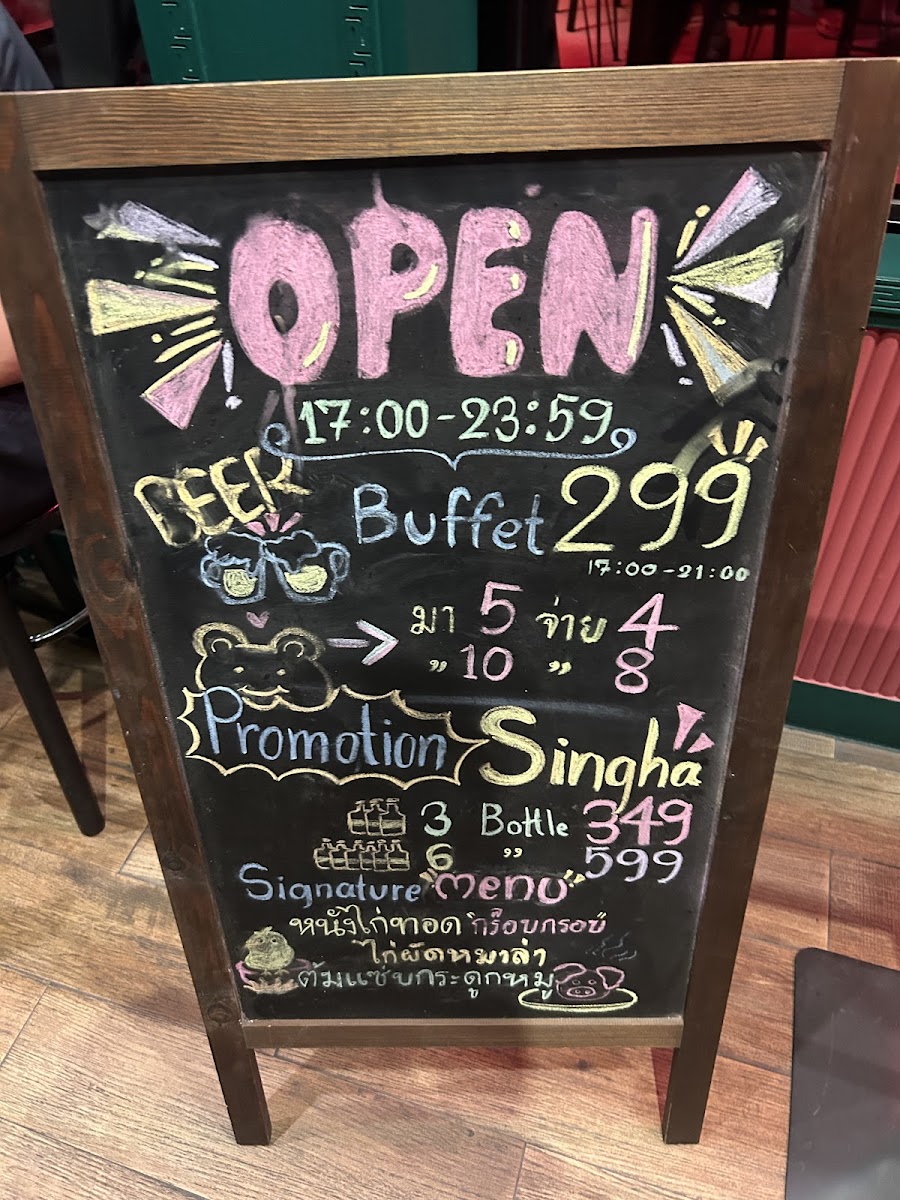 OPEN
17:00-23:59
BEER Buffet 299
17:00-21:00
มา 5 จ่าย 4
" 10 " 8
Promotion Singha
3 Bottle 349
6 " 599
Signature "menu"
หนังไก่ทอด "กร๊อบกรอบ"
ไก่ผัดหมาล่า
ต้มแซ่บกระดูกหมู